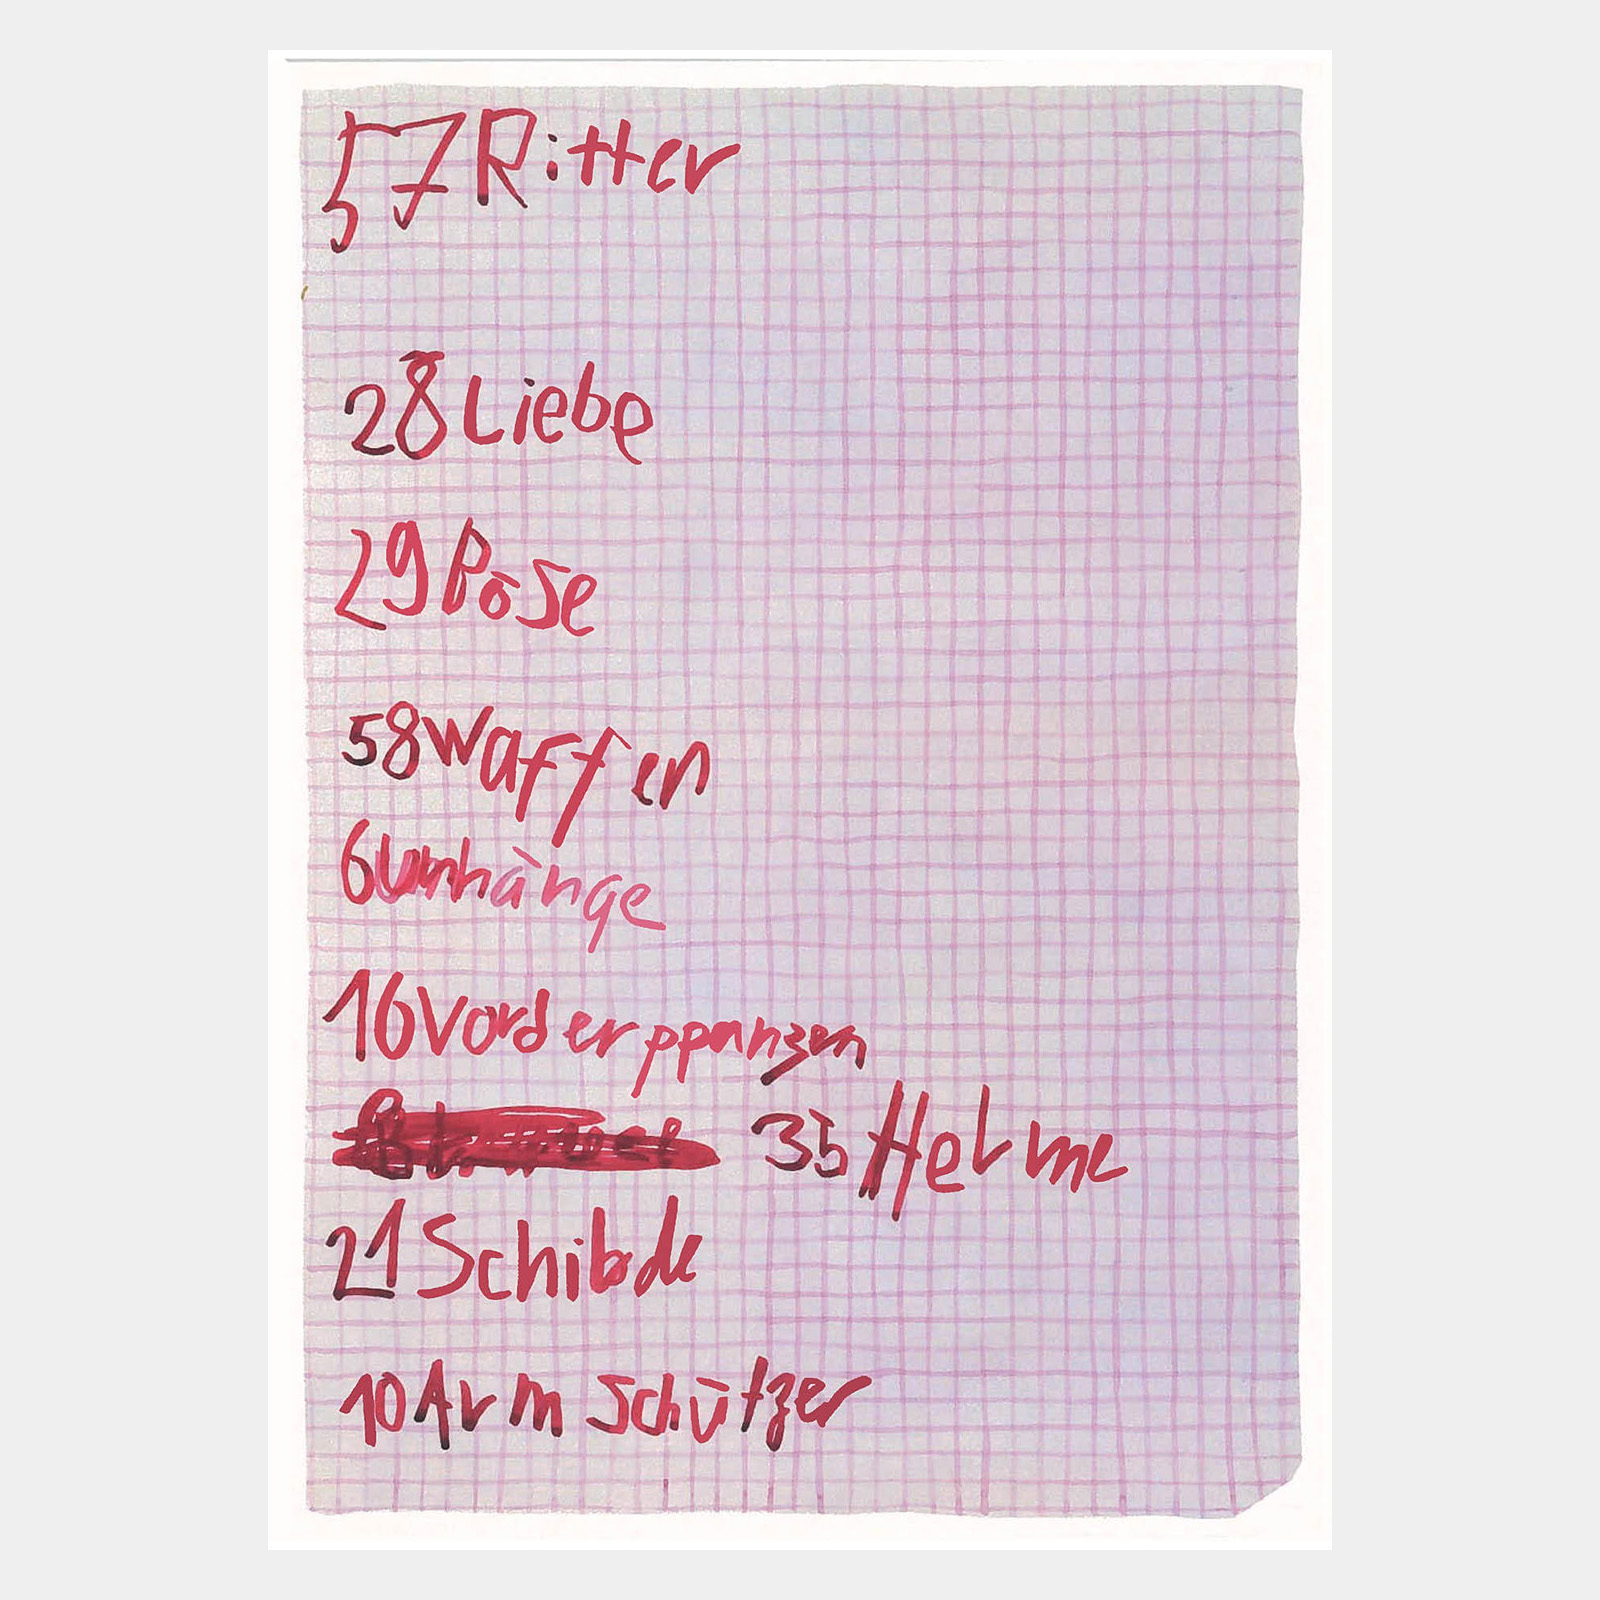 57 Ritter
28 Liebe
29 Böse
58 Waffen
6 Umhänge
16 Vorderppanzen
35 Helme
21 Schibde
10 Arm Schützer